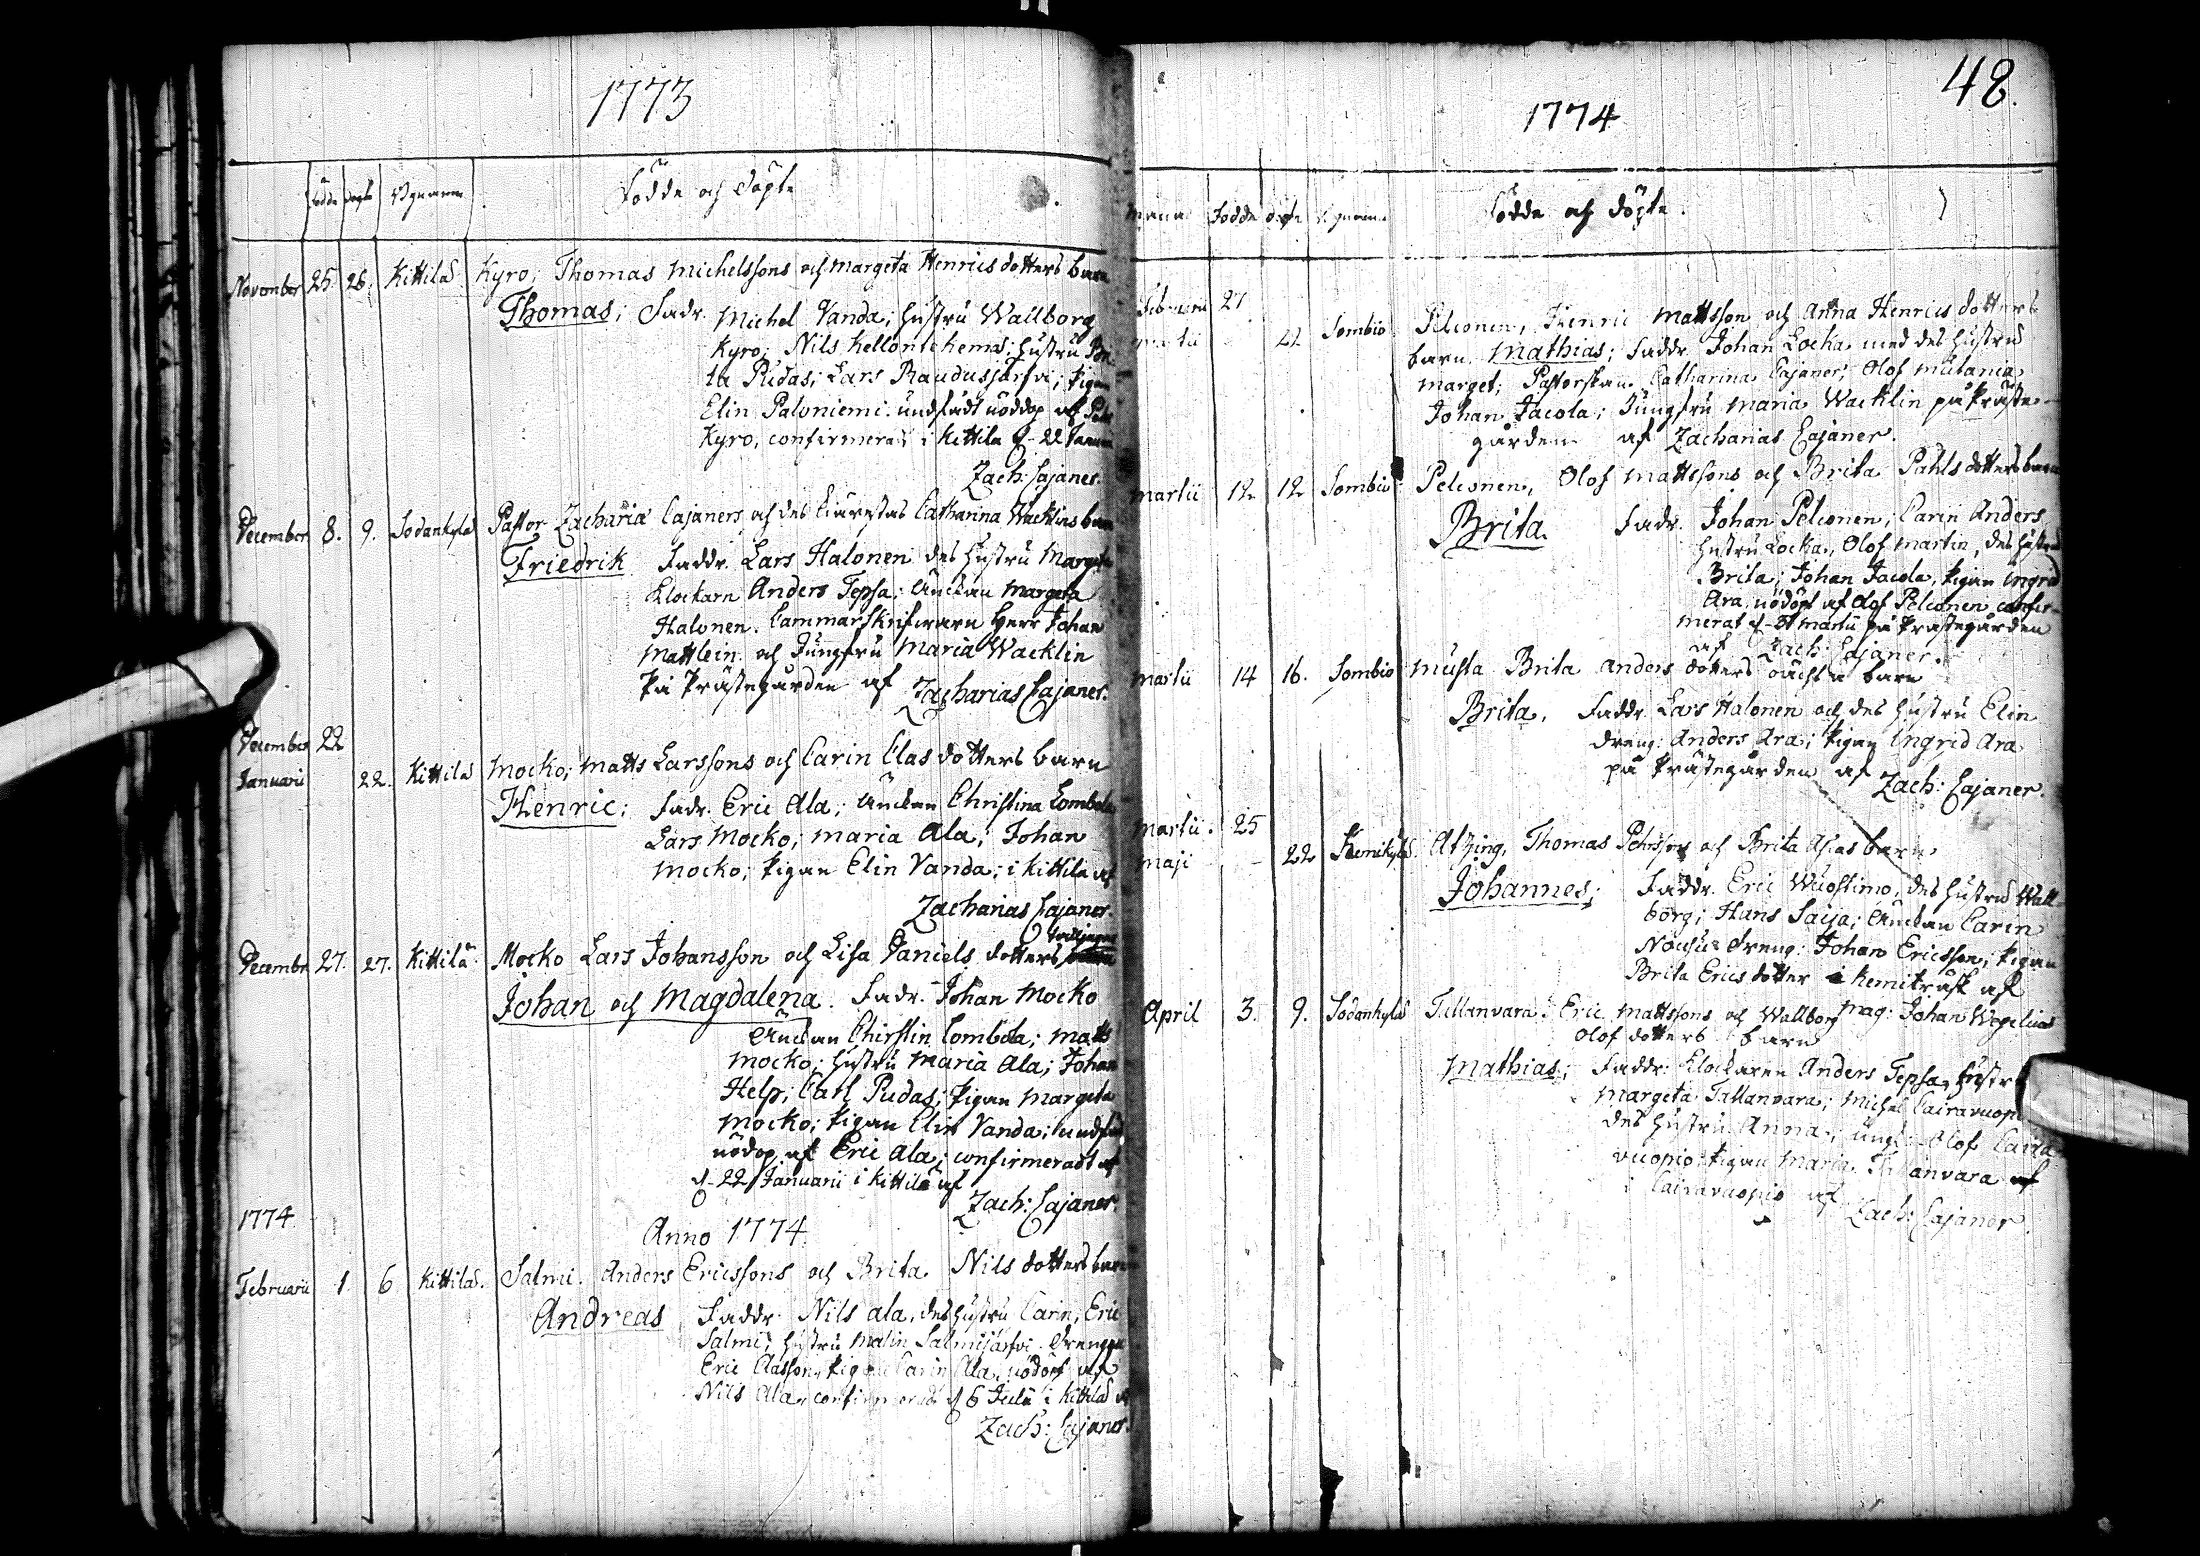 1773
Födde döpte Bynamn Födde och Döpte
November 25 26. Kittilä Kyro; Thomas Michelssons och Margeta Henrics dotters barn
Thomas; Fadr. Michel Vanda; hustru Wallborg
Kyro; Nils Kellontekemä; hustru Bri
ta Pudas; Lars Raudusjärfvi; Pigan
Elin Paloniemi. undfådt nöddop af Pehr
Kyro, confirmerad i Kittilä d. 22 Januar
Zach: Cajaner.
December 8. 9. Sodankylä Pastor Zacharia Cajaners och des Kiärestas Catharina Wacklins barn
Friedrik Faddr. Lars Halonen des hustru Margeta
Klockarn Anders Tepsa; Änckan Margeta
Halonen. Cammarskrifwaren Herr Johan
Mattlein och Jungfru Maria Wacklin
På Prästegården af Zacharias Cajaner.
December 22
Januarii 22. Kittilä Mocko; Matts Larssons och Carin Clas dotters barn
Henric; Fadr. Eric Ala; Änckan Christina Lombola
Lars Mocko; Maria Ala; Johan
Mocko; Pigan Elin Vanda; i Kittilä af
Zacharias Cajaner.
December 27. 27. Kittilä Mocko Lars Johansson och Lisa Daniels dotters tvillingar
Johan och Magdalena. Fadr. Johan Mocko
Änckan Chirstin Lombola; Matts
Mocko; hustru Maria Ala; Johan
Help; Carl Pudas; Pigan Margeta
Mocko; Pigan Elin Vanda; undfådt
nödop af Eric Ala; confirmeradt af
d. 22 Januarii i Kittilä af
Zach: Cajaner.
1774
Anno 1774.
Februarii 1 6 Kittilä. Salmi. Anders Ericssons och Brita Nils dotters barn
Andreas Faddr. Nils Ala, des hustru Carin, Eric
Salmi; hustru Malin Salmijärfvi. Drengen
Eric Classon, Pigan Carin Ala, nödöpt af
Nils Ala, confirmerad d. 6 Julii i Kittilä af
Zach: Cajaner.
48.
1774
Födde döpte Bynamn Födde och döpte.
Februarii 27
Martii Sombio Pelconen, Henric Mattsson och Anna Henrics dotters
barn Mathias; Faddr. Johan Locka med des hustru
Marget; Pastorskan Catharina Cajaner; Olof Mutania
Johan Jacola; Jungfru Maria Wacklin på Präste-
gården af Zacharias Cajaner.
Martii 12 12 Sombio Pelconen, Olof Mattssons och Brita Pahls dotters barn
Brita. Fadr. Johan Pelconen; Carin Anders
hustru Locka, Olof Martin, des hustru
Brita; Johan Jacola, Pigan Ingrid
Ara nödöpt af Olof Pelconen confir-
merat d. Martii på Prästegården
af Zach: Cajaner.
Martii 14 16. Sombio Musta Brita Anders dotters oächta barn
Brita. Faddr. Lars Halonen och des hustru Elin
dreng: Anders Ara; Pigan Ingrid Ara
på Prästegården af Zach: Cajaner.
Martii. 25
Maji 22 Kemikylä. Atzing, Thomas Pehrssons och Brita barn
Johannes; Faddr. Eric Wuostimo, des hustru Wall-
borg; Hans Saija; Änckan Carin
Nousu dreng: Johan Ericsson; Pigan
Brita Erics dotter i Kemiträsk af
Mag: Johan Wegelius
April 3. 9. Sodankylä Tallanvara. Eric Mattssons och Wallborg
Olof dotters barn
Mathias; Faddr: Klockaren Anders Tepsa, hustru
Margeta Tallanvara; Michel Cairavuopio
des hustru Anna; ungk: Olof Caira-
vuopio; Pigan Maria Tallanvara af
i Cairavuopio af
Zach: Cajaner.